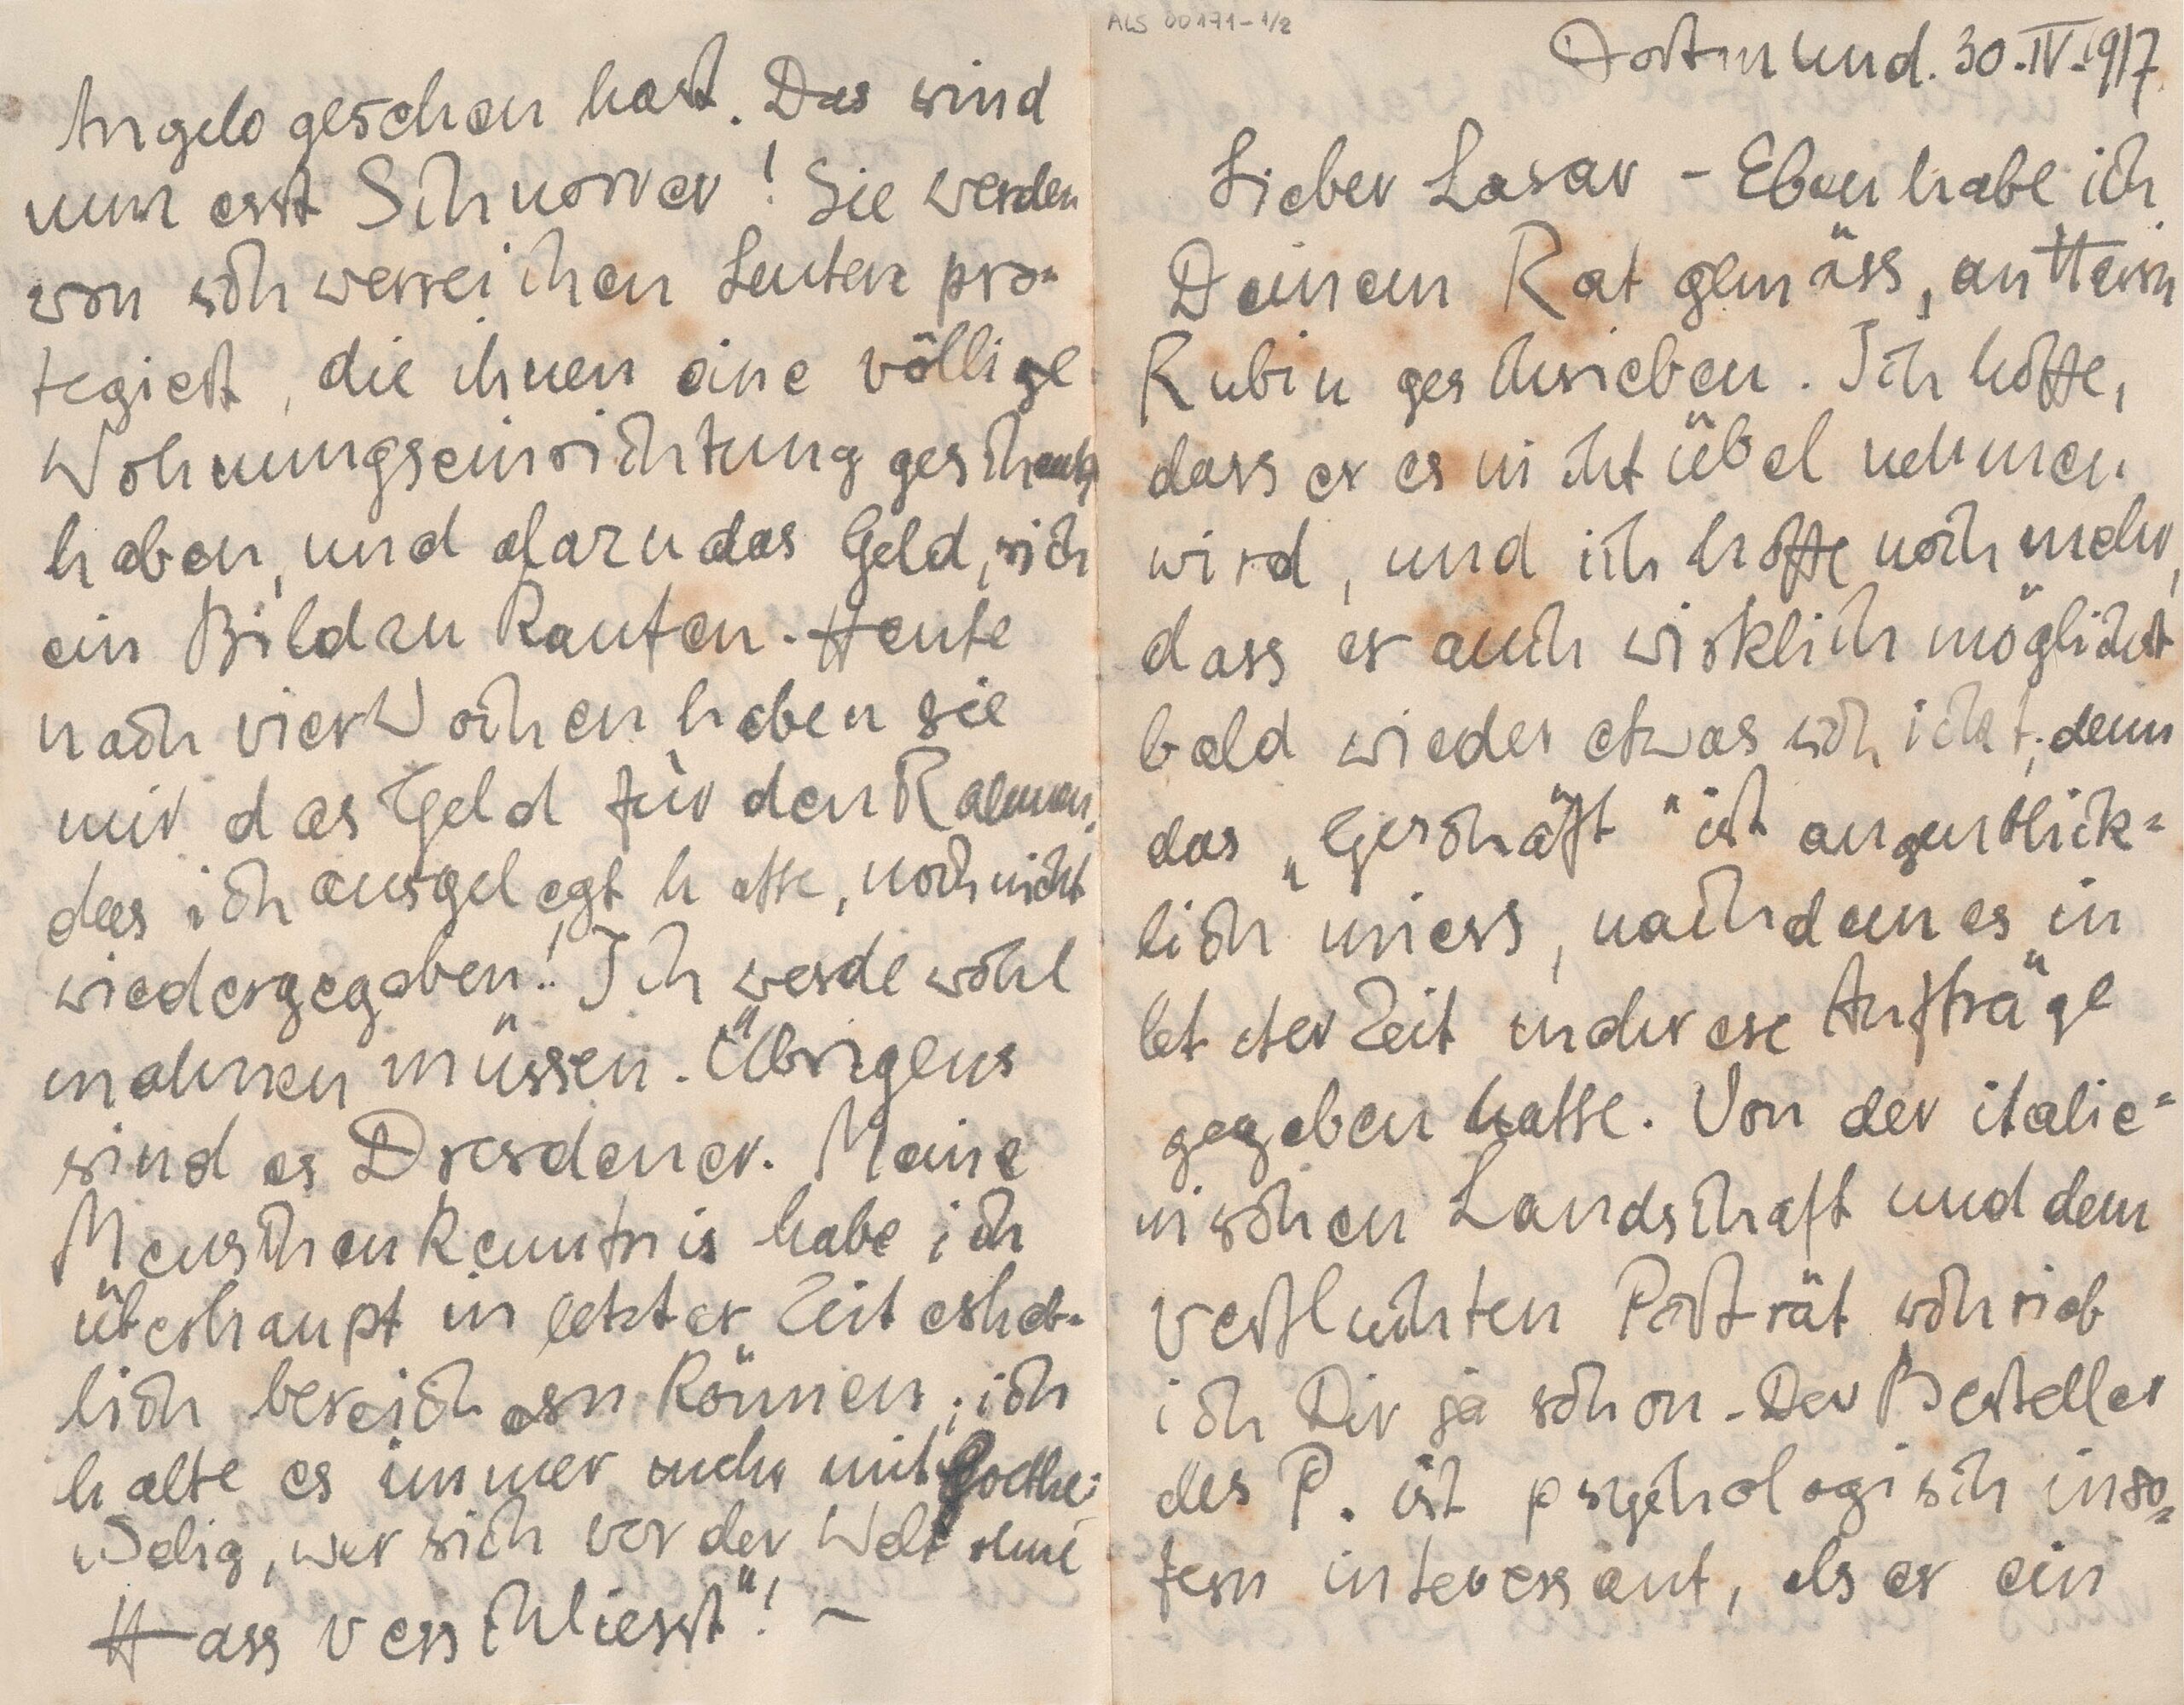 ALS 00171-1/2
Dortmund. 30.IV.1917.
Lieber Lasar - Eben habe ich
Deinem Rat gemäss, an Herrn
Rubin geschrieben. Ich hoffe,
dass er es nicht übel nehmen
wird, und ich hoffe noch mehr,
dass er auch wirklich möglichst
bald wieder etwas schickt; denn
das „Geschäft" ist augenblick=
lich mies, nachdem es in
letzter Zeit mehrere Aufträge
gegeben hatte. Von der italie=
nischen Landschaft und dem
verfluchten Porträt schrieb
ich Dir ja schon. Der Besteller
des P. ist psychologisch inso=
fern interessant, als er ein
Angelo gesehen hast. Das sind
nun erst Schnorrer! Sie werden
von schwerreichen Leuten pro-
tegiert, die ihnen eine völlige
Wohnungseinrichtung geschenkt
haben, und dazu das Geld, sich
ein Bild zu kaufen. Heute
nach vier Wochen haben sie
mir das Geld für den Rahmen,
das ich ausgelegt hatte, noch nicht
wiedergegeben! Ich werde wohl
mahnen müssen. Übrigens
sind es Dresdener. Meine
Menschenkenntnis habe ich
überhaupt in letzter Zeit erheb-
lich bereichern können; ich
halte es immer mehr mit Goethe:
„Selig, wer sich vor der Welt ohne
Hass verschliesst"! -